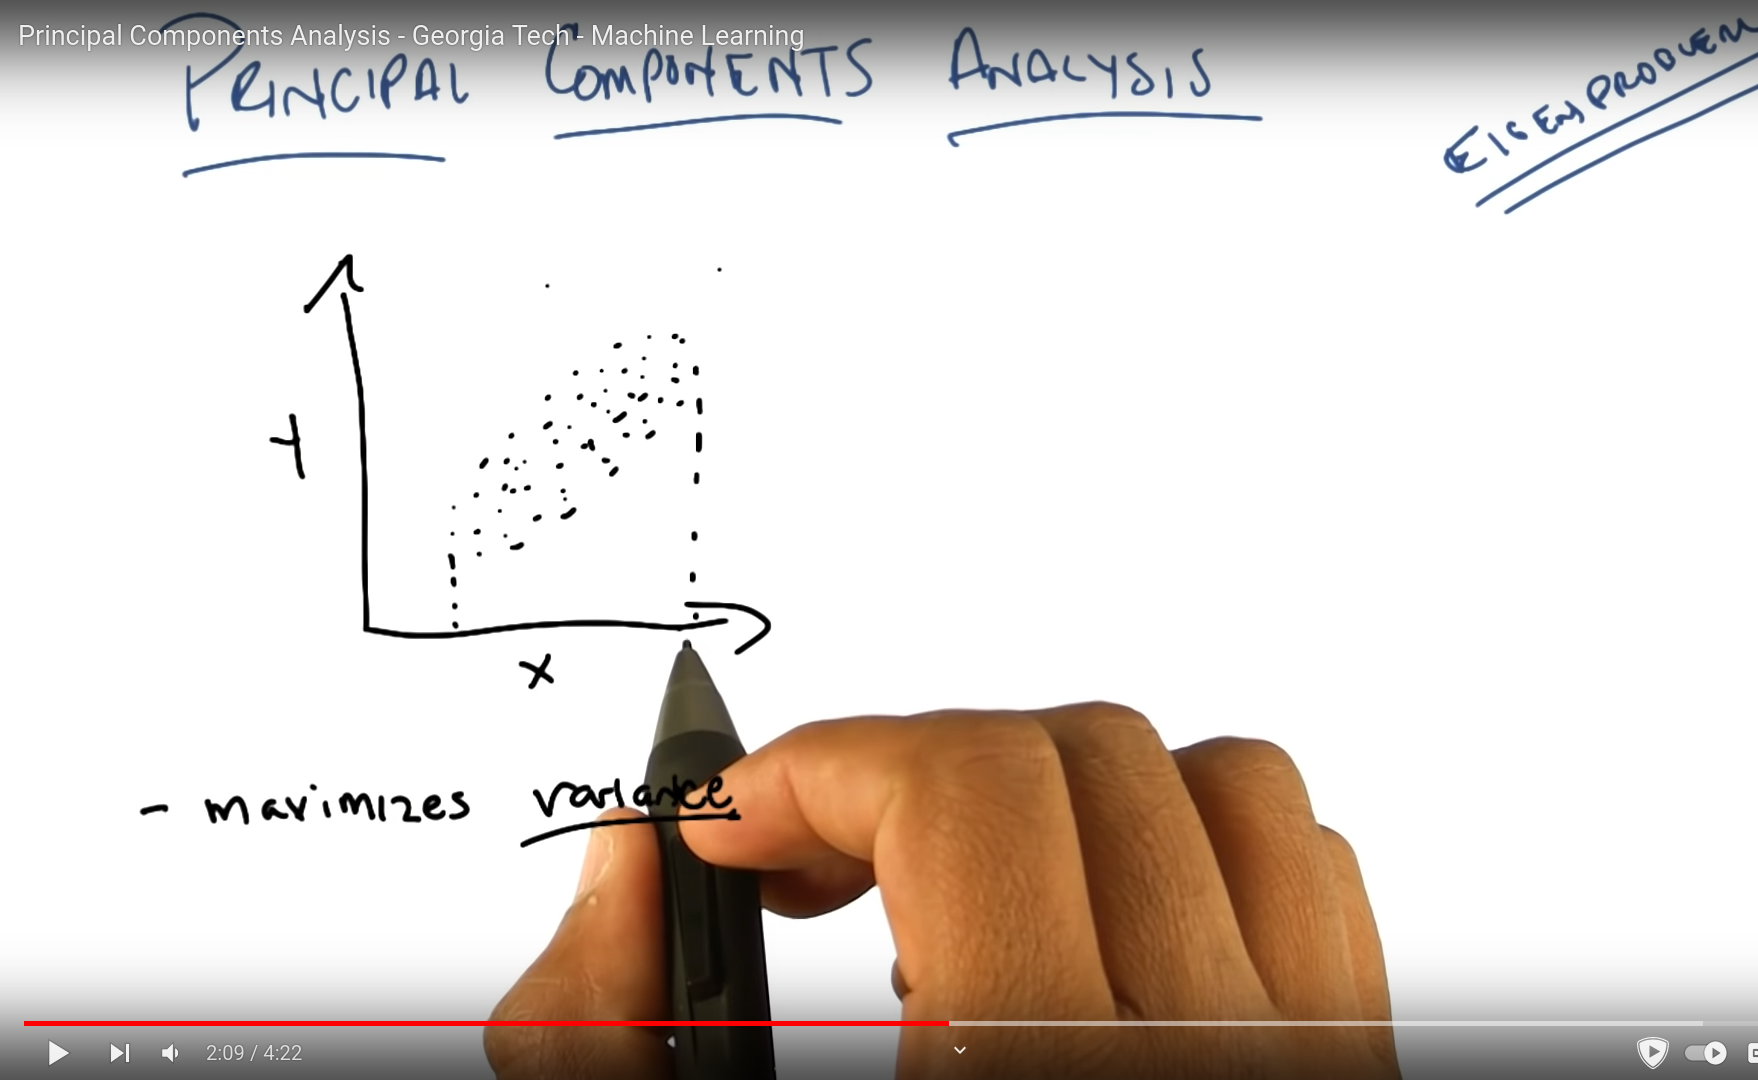 Principal Components Analysis - Georgia Tech - Machine Learning
PRINCIPAL COMPONENTS ANALYSIS
EIGENPROBLEM
Y
X
- maximizes variance
2:09 / 4:22